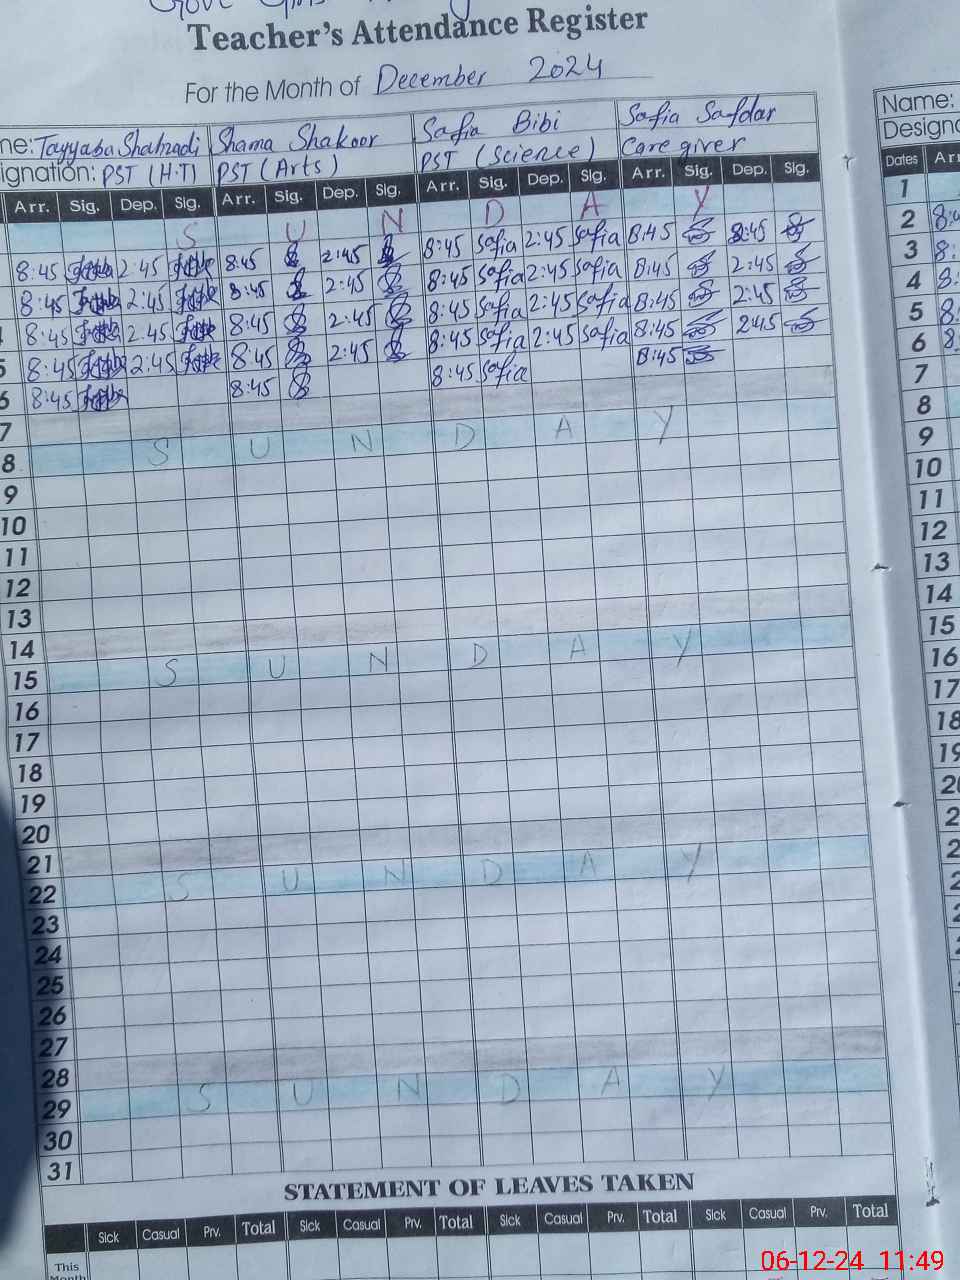 Teacher's Attendance Register
For the Month of December 2024
me: Tayyaba Shahzadi Shama Shakoor Safia Bibi Safia Safdar Name:
ignation: PST (H.T) PST (Arts) PST (Science) Care giver Designa
Arr. Sig. Dep. Sig. Arr. Sig. Dep. Sig. Arr. Sig. Dep. Sig. Arr. Sig. Dep. Sig. Dates Arr
S U N D A Y 1
8:45 2:45 8:45 2:45 8:45 Safia 2:45 Safia 8:45 8:45 2 8:4
8:45 2:45 8:45 2:45 8:45 Safia 2:45 Safia 8:45 2:45 3 8:
4 8:45 2:45 8:45 2:45 8:45 Safia 2:45 Safia 8:45 2:45 4 8:
5 8:45 2:45 8:45 2:45 8:45 Safia 2:45 Safia 8:45 2:45 5 8:
6 8:45 8:45 8:45 Safia 8:45 6 8:
7 7
8 S U N D A Y 8
9 9
10 10
11 11
12 12
13 13
14 14
15 S U N D A Y 15
16 16
17 17
18 18
19 19
20 20
21 2
22 S U N D A Y 2
23 2
24 2
25 2
26
27
28
29 S U N D A Y
30
31
STATEMENT OF LEAVES TAKEN
Sick Casual Prv. Total Sick Casual Prv. Total Sick Casual Prv. Total Sick Casual Prv. Total
This
Month
06-12-24 11:49